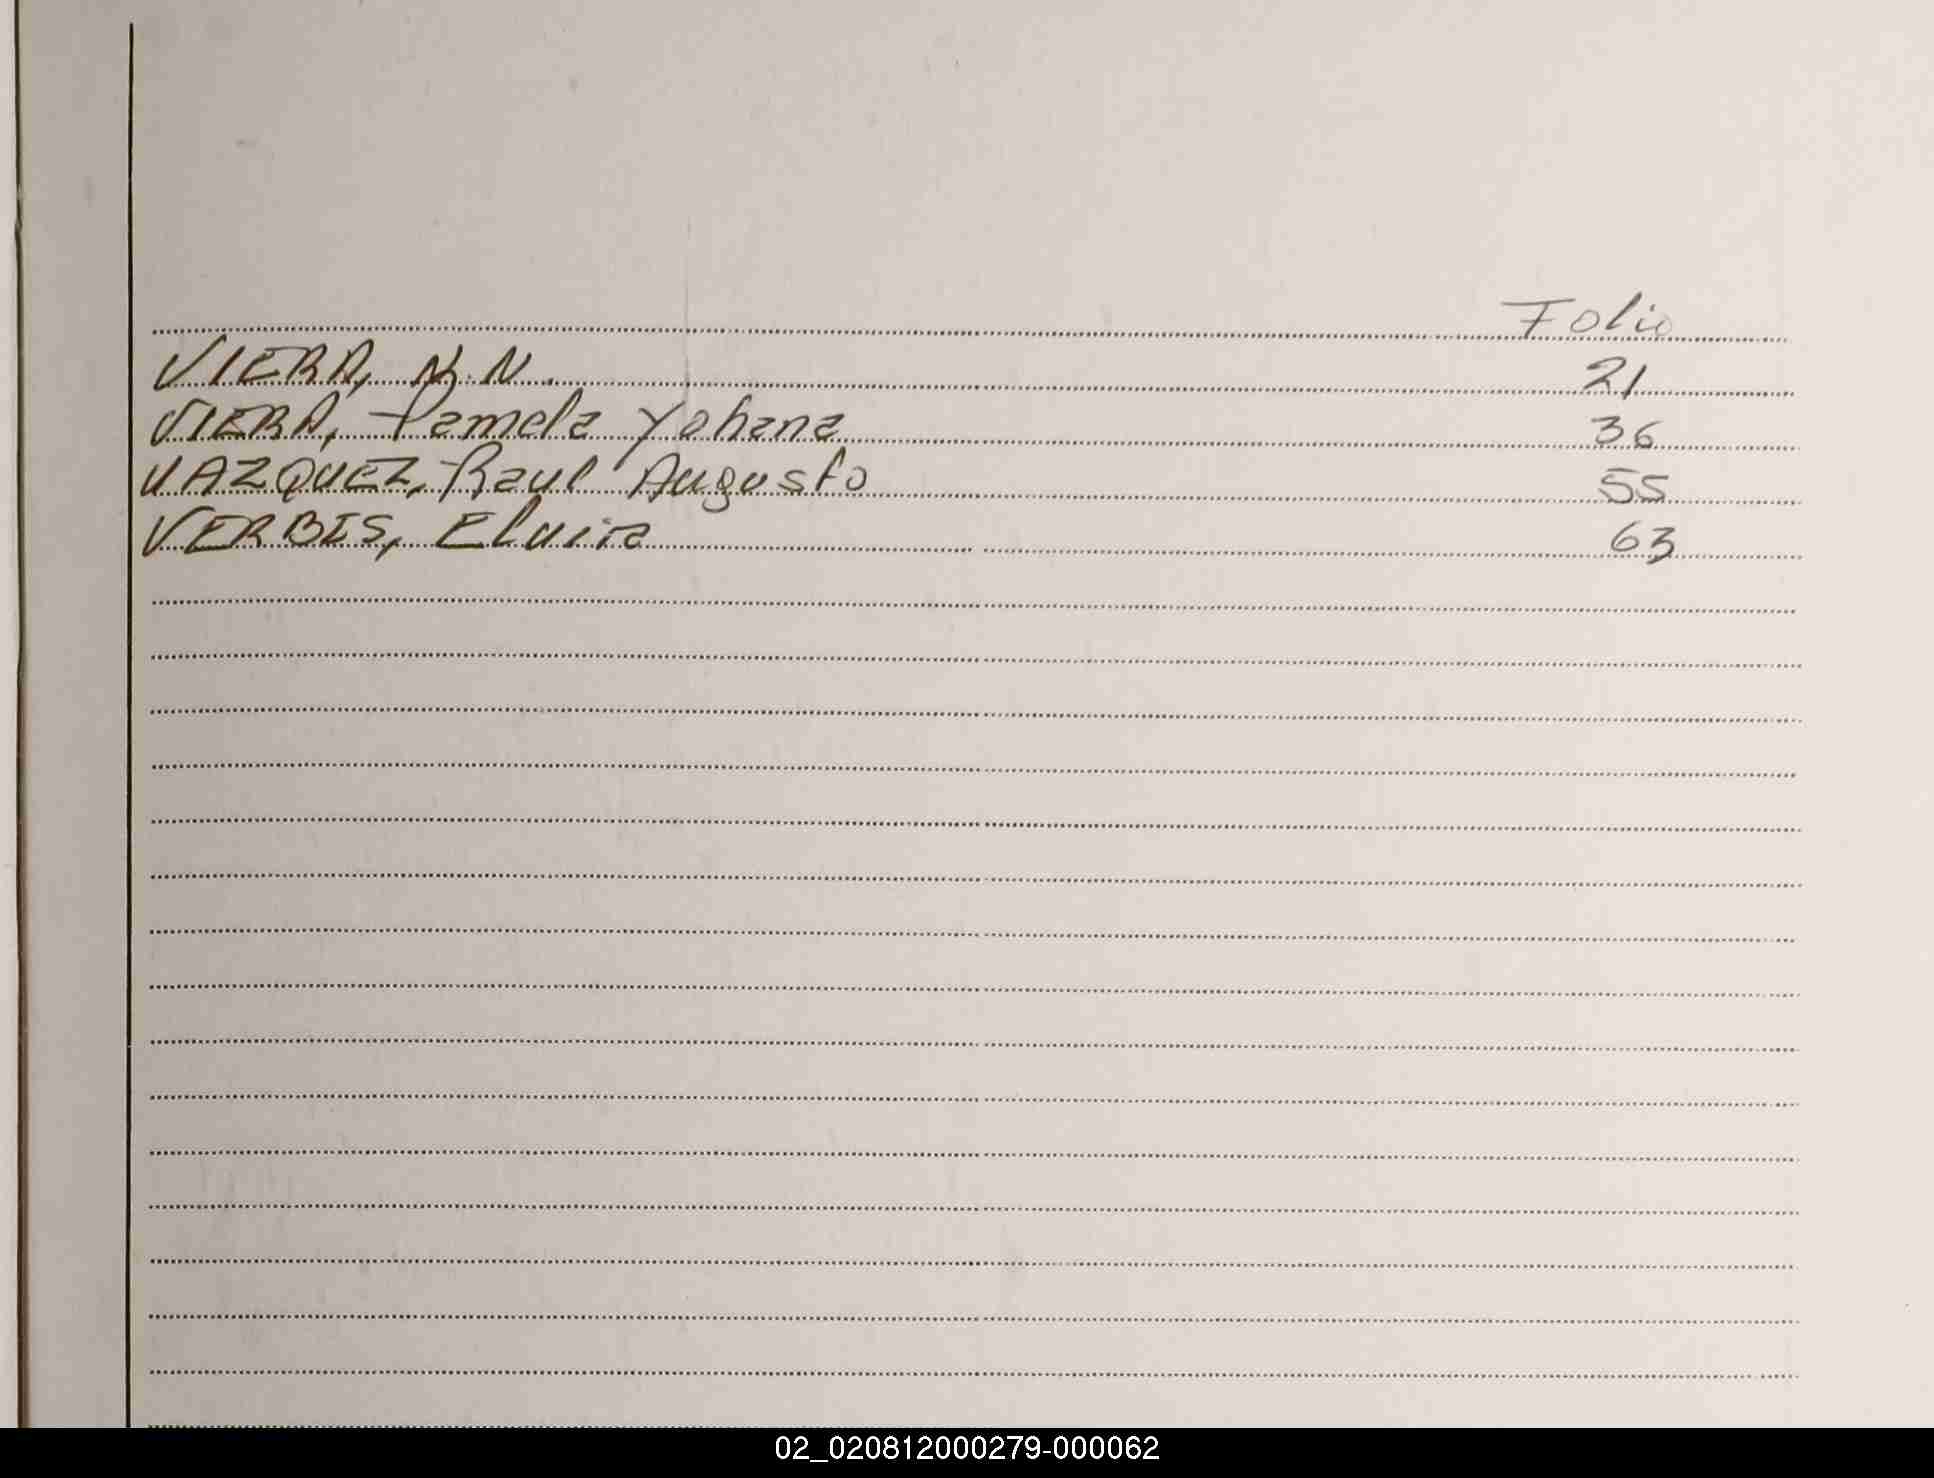 Folio
VIERA, N.N. 21
VIERA, Pamela Yohana 36
VAZQUEZ, Raul Augusto 55
VERBIS, Elvira 63
02_020812000279-000062